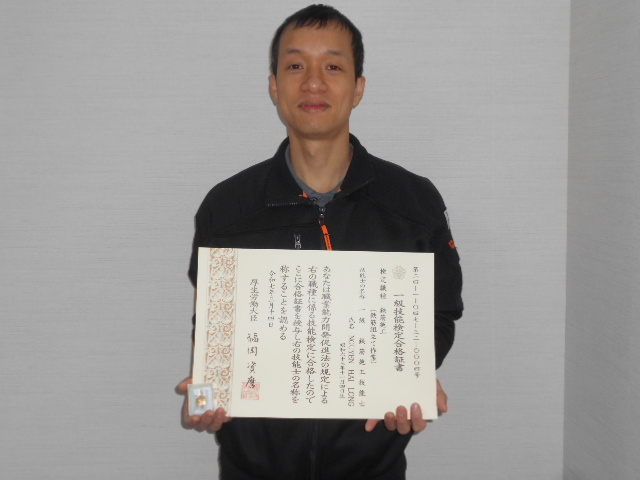 一級技能検定合格証書
検定職種 鉄筋施工
(鉄筋組立て作業)
技能士の名称 一級鉄筋施工技能士
氏名 NGUYEN HAI LONG
あなたは職業能力開発促進法の規定による
右の職種に係る技能検定に合格したので
ここに合格証書を授与し右の技能士の名称を
称することを認める
令和七年三月十四日
厚生労働大臣 福岡資麿